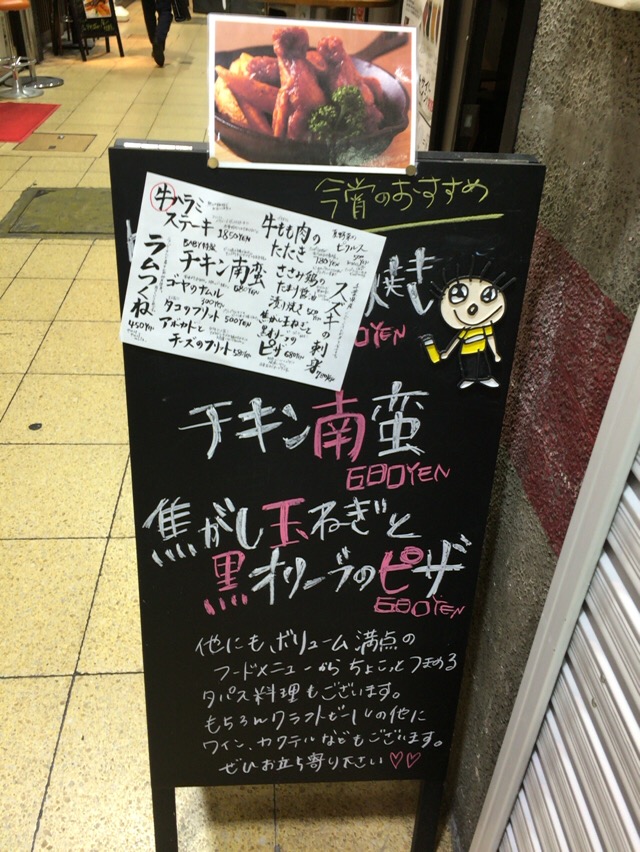 今宵のおすすめ
牛ハラミ
ステーキ 1850YEN
BABY特製
チキン南蛮
680YEN
ゴーヤのナムル
300YEN
タコのフリット 500YEN
アボカドと
チーズのフリット 580YEN
ラムつくね
450YEN
牛もも肉の
たたき
780YEN
ささみ鶏の
たまり醤油
漬け焼き
焦がし玉ねぎと
黒オリーブの
ピザ 680YEN
ピクルス
スズキの刺身
焼き
0YEN
チキン南蛮
680YEN
焦がし玉ねぎと
黒オリーブのピザ
680YEN
他にも、ボリューム満点の
フードメニューからちょこっとつまめる
タパス料理もございます。
もちろんクラフトビールの他に
ワイン、カクテルなどもございます。
ぜひお立ち寄り下さい♡♡